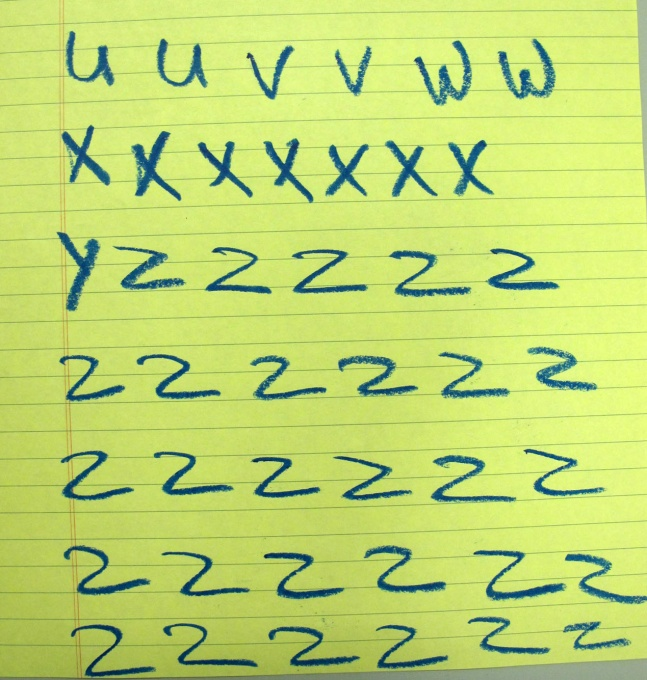 u u v v w w
x x x x x x x
y z z z z z
z z z z z z
z z z z z z
z z z z z z
z z z z z z